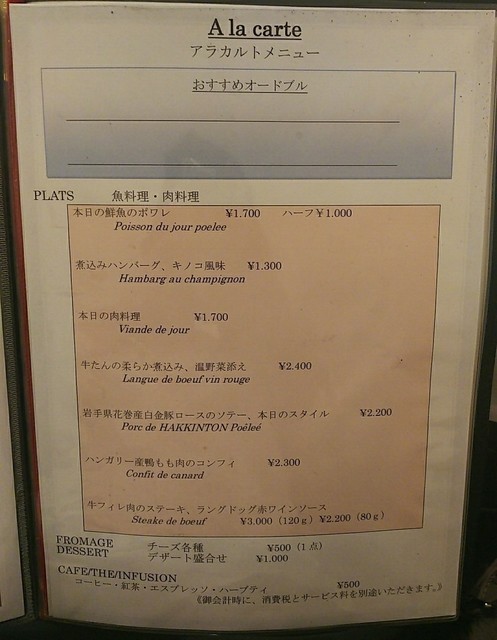 A la carte
アラカルトメニュー
おすすめオードブル
PLATS 魚料理・肉料理
本日の鮮魚のポワレ ¥1.700 ハーフ¥1.000
Poisson du jour poelee
煮込みハンバーグ、キノコ風味 ¥1.300
Hambarg au champignon
本日の肉料理 ¥1.700
Viande de jour
牛たんの柔らか煮込み、温野菜添え ¥2.400
Langue de boeuf vin rouge
岩手県花巻産白金豚ロースのソテー、本日のスタイル ¥2.200
Porc de HAKKINTON Poêleé
ハンガリー産鴨もも肉のコンフィ ¥2.300
Confit de canard
牛フィレ肉のステーキ、ラングドッグ赤ワインソース
Steake de boeuf ¥3.000（120g）¥2.200（80g）
FROMAGE チーズ各種 ¥500（1点）
DESSERT デザート盛合せ ¥1.000
CAFE/THE/INFUSION
コーヒー・紅茶・エスプレッソ・ハーブティ ¥500
《御会計時に、消費税とサービス料を別途いただきます。》